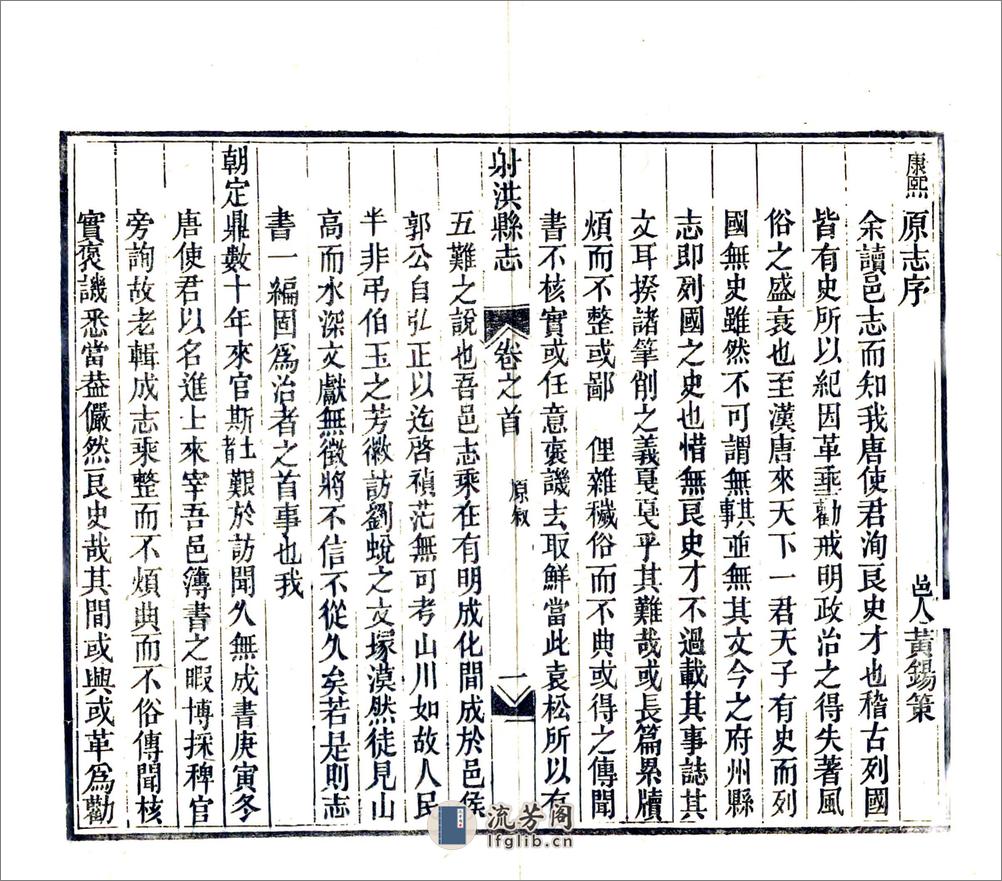 康熙原志序
邑人黃錫策
余讀邑志而知我唐使君洵良史才也稽古列國
皆有史所以紀因革垂勸戒明政治之得失著風
俗之盛衰也至漢唐來天下一君天子有史而列
國無史雖然不可謂無其並無其文今之府州縣
志即列國之史也惜無良史才不過載其事誌其
文耳揆諸筆削之義戛戛乎其難哉或長篇累牘
煩而不整或鄙俚雜穢俗而不典或得之傳聞
書不核實或任意褒譏去取鮮當此袁松所以有
射洪縣志 卷之首 原敘 一
五難之說也吾邑志乘在有明成化間成於邑侯
郭公自弘正以迄啓禎茫無可考山川如故人民
半非弔伯玉之芳徽訪劉蛻之文塚漠然徒見山
高而水深文獻無徵將不信不從久矣若是則志
書一編固爲治者之首事也我
朝定鼎數十年來官斯土者艱於訪聞久無成書庚寅冬
唐使君以名進士來宰吾邑簿書之暇博採稗官
旁詢故老輯成志乘整而不煩典而不俗傳聞核
實褒譏悉當葢儼然良史哉其間或興或革爲勸
流芳阁
lfglib.cn